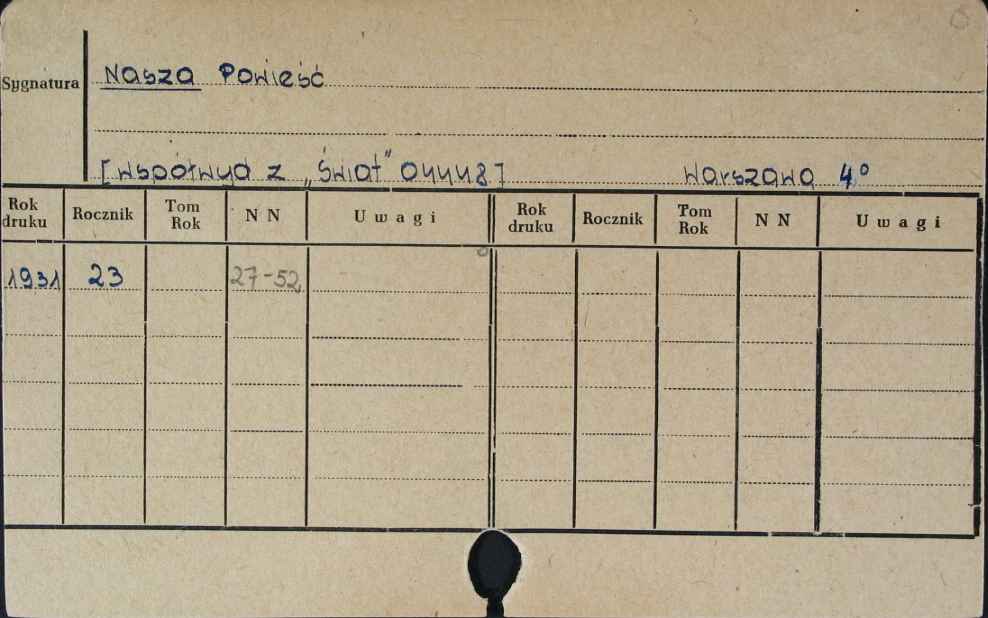 Sygnatura Nasza Powieść
[Współwyd z „Świat" 04448] Warszawa 4°
Rok druku Rocznik Tom Rok NN Uwagi Rok druku Rocznik Tom Rok NN Uwagi
1931 23 27-52